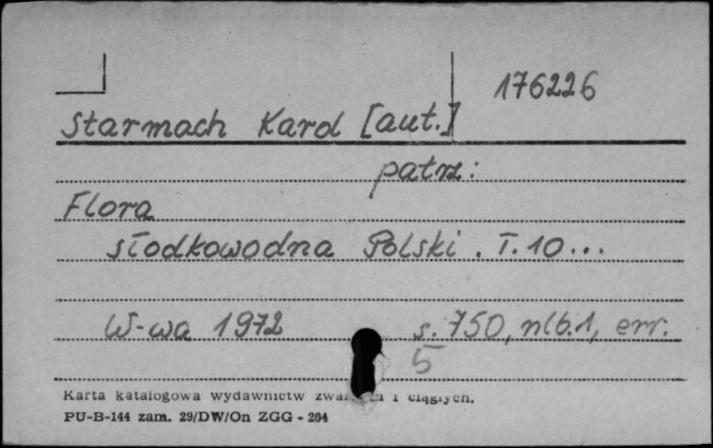 176226
Starmach Karol [aut.]
patrz:
Flora
słodkowodna Polski. T.10...
W-wa 1972 s. 750, nlb.1, err.
5
Karta katalogowa wydawnictw i ciągłych.
PU-B-144 zam. 29/DW/On ZGG - 204